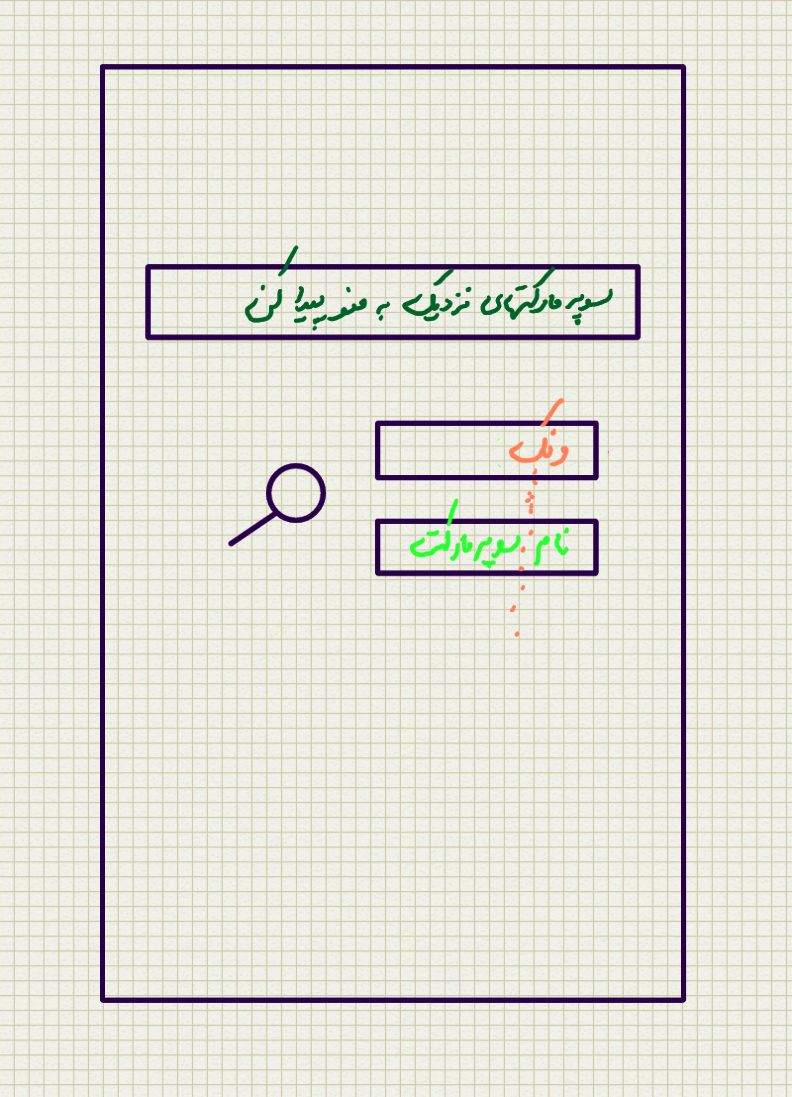 سوپر مارکتهای نزدیک به منو پیدا کن
ونک
نام سوپر مارکت